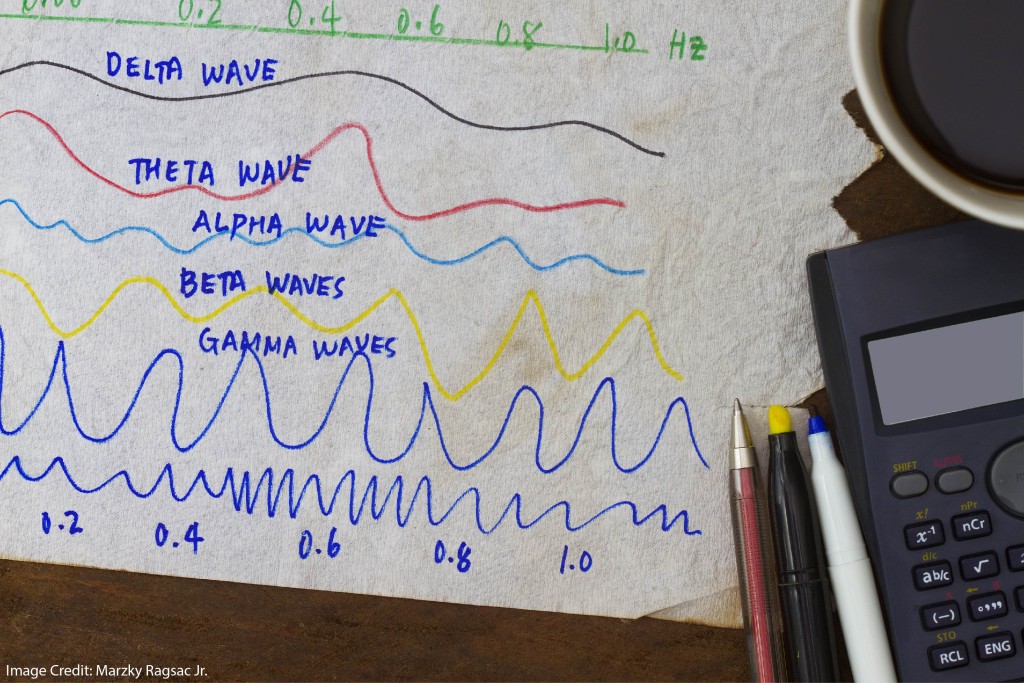 0.00 0.2 0.4 0.6 0.8 1.0 HZ
DELTA WAVE
THETA WAVE
ALPHA WAVE
BETA WAVES
GAMMA WAVES
0.2 0.4 0.6 0.8 1.0
SHIFT ALPHA
x! nPr
x⁻¹ nCr
d/c
ab/c √
(−) °’”
STO
RCL ENG
Image Credit: Marzky Ragsac Jr.